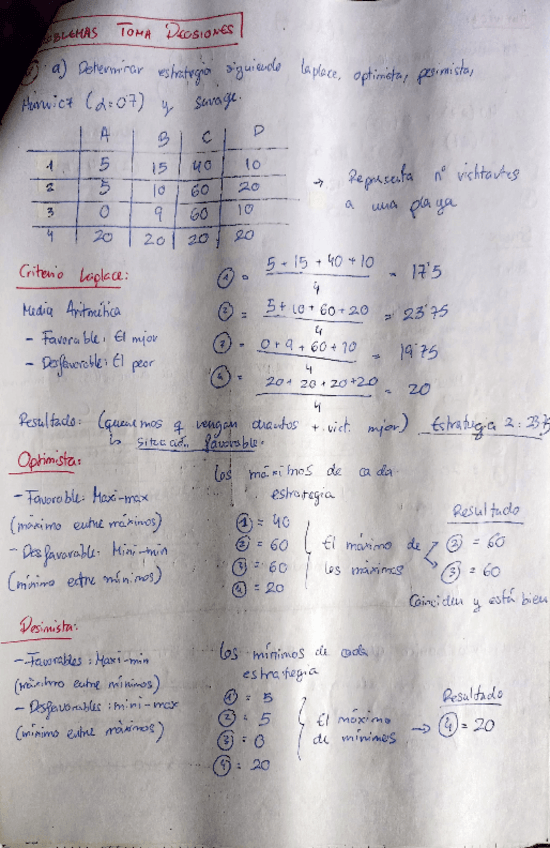 PROBLEMAS TOMA DECISIONES
① a) Determinar estrategia siguiendo laplace, optimista, pesimista,
Hurwicz (α=0'7) y savage.
A B C D
1 5 15 40 10
2 5 10 60 20
3 0 9 60 10
4 20 20 20 20
→ Representa nº visitantes
a una playa
Criterio Laplace:
Media Aritmética
- Favorable: El mjor
- Desfavorable: El peor
① = 5 + 15 + 40 + 10 / 4 = 17'5
② = 5 + 10 + 60 + 20 / 4 = 23'75
③ = 0 + 9 + 60 + 10 / 4 = 19'75
④ = 20 + 20 + 20 + 20 / 4 = 20
Resultado: (queremos q vengan cuantos + visit. mjor) Estrategia 2: 23'75
↳ situación favorable.
Optimista:
- Favorable: Maxi-max
(máximo entre máximos)
- Desfavorable: Mini-min
(mínimo entre mínimos)
Los máximos de cada
estrategia
① = 40
② = 60
③ = 60
④ = 20
El máximo de
los máximos
Resultado
② = 60
③ = 60
Coinciden y está bien
Pesimista:
- Favorables: Maxi-min
(máximo entre mínimos)
- Desfavorables: mini-max
(mínimo entre máximos)
Los mínimos de cada
estrategia
① = 5
② = 5
③ = 0
④ = 20
El máximo
de mínimos →
Resultado
④ = 20